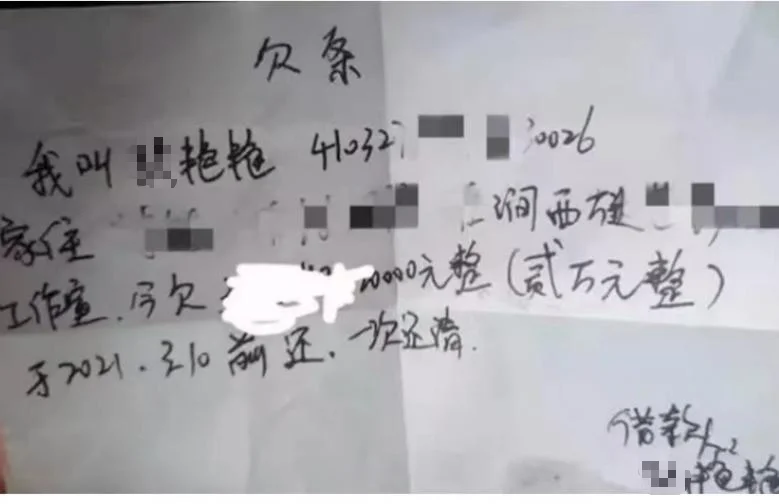 欠条
我叫 艳艳 41032 0026
家住 涧西
工作室,今欠 0000元整(贰万元整)
于2021.3.10前还,一次还清.
借款人
艳艳